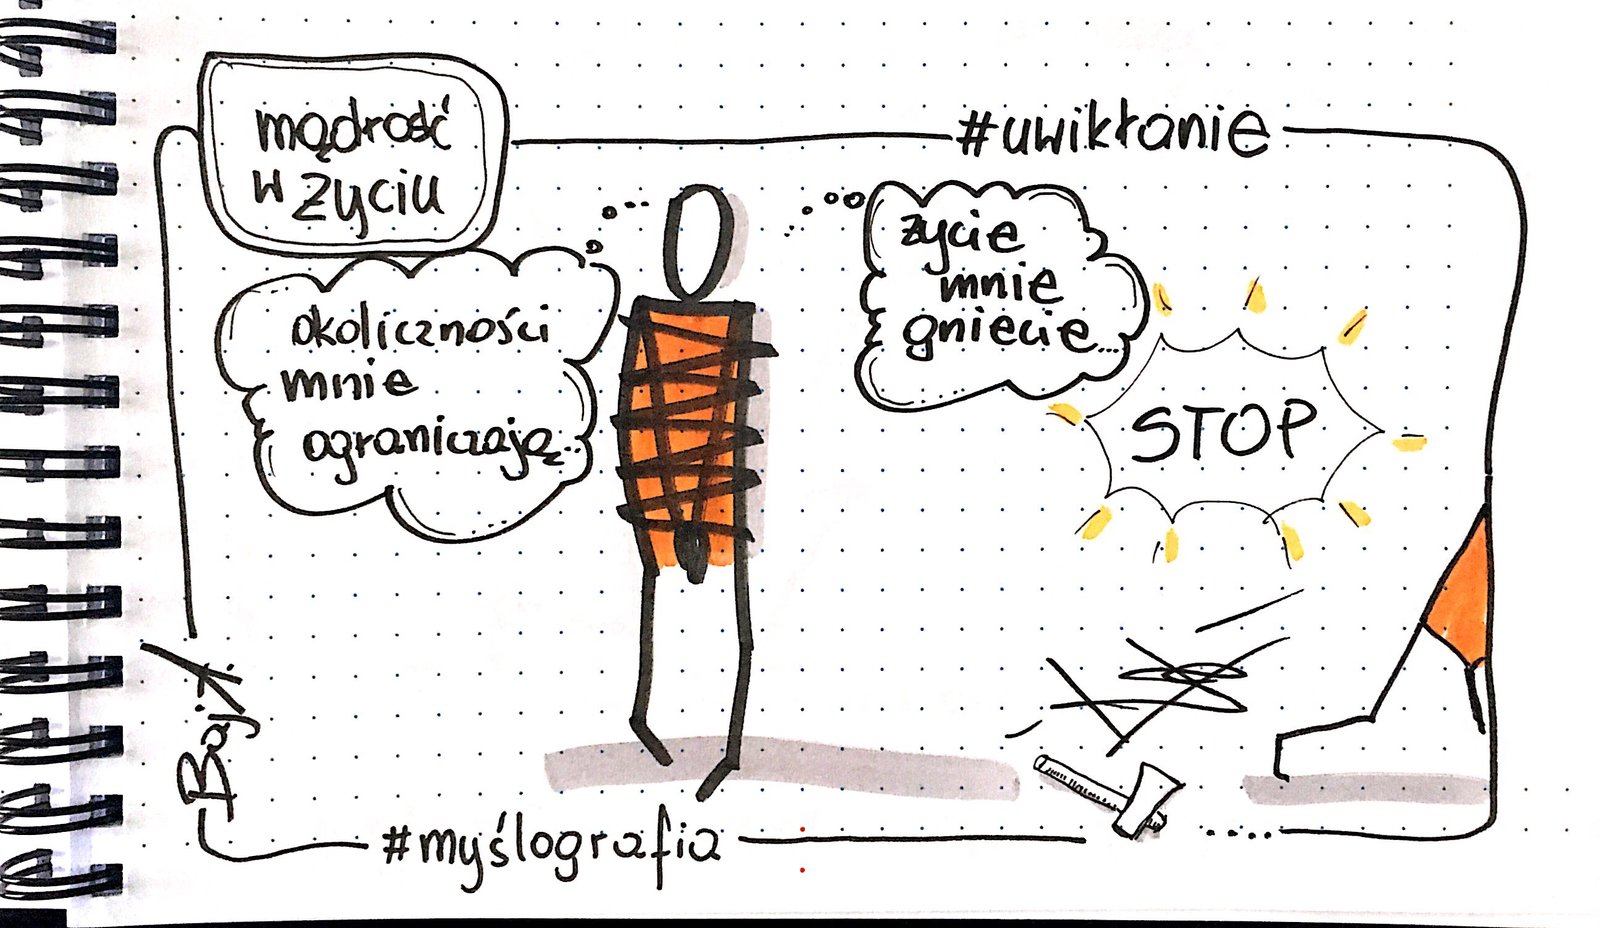 mądrość
w życiu
#uwikłanie
życie
mnie
gniecie...
okoliczności
mnie
ograniczają...
STOP
BajA
#myślografia